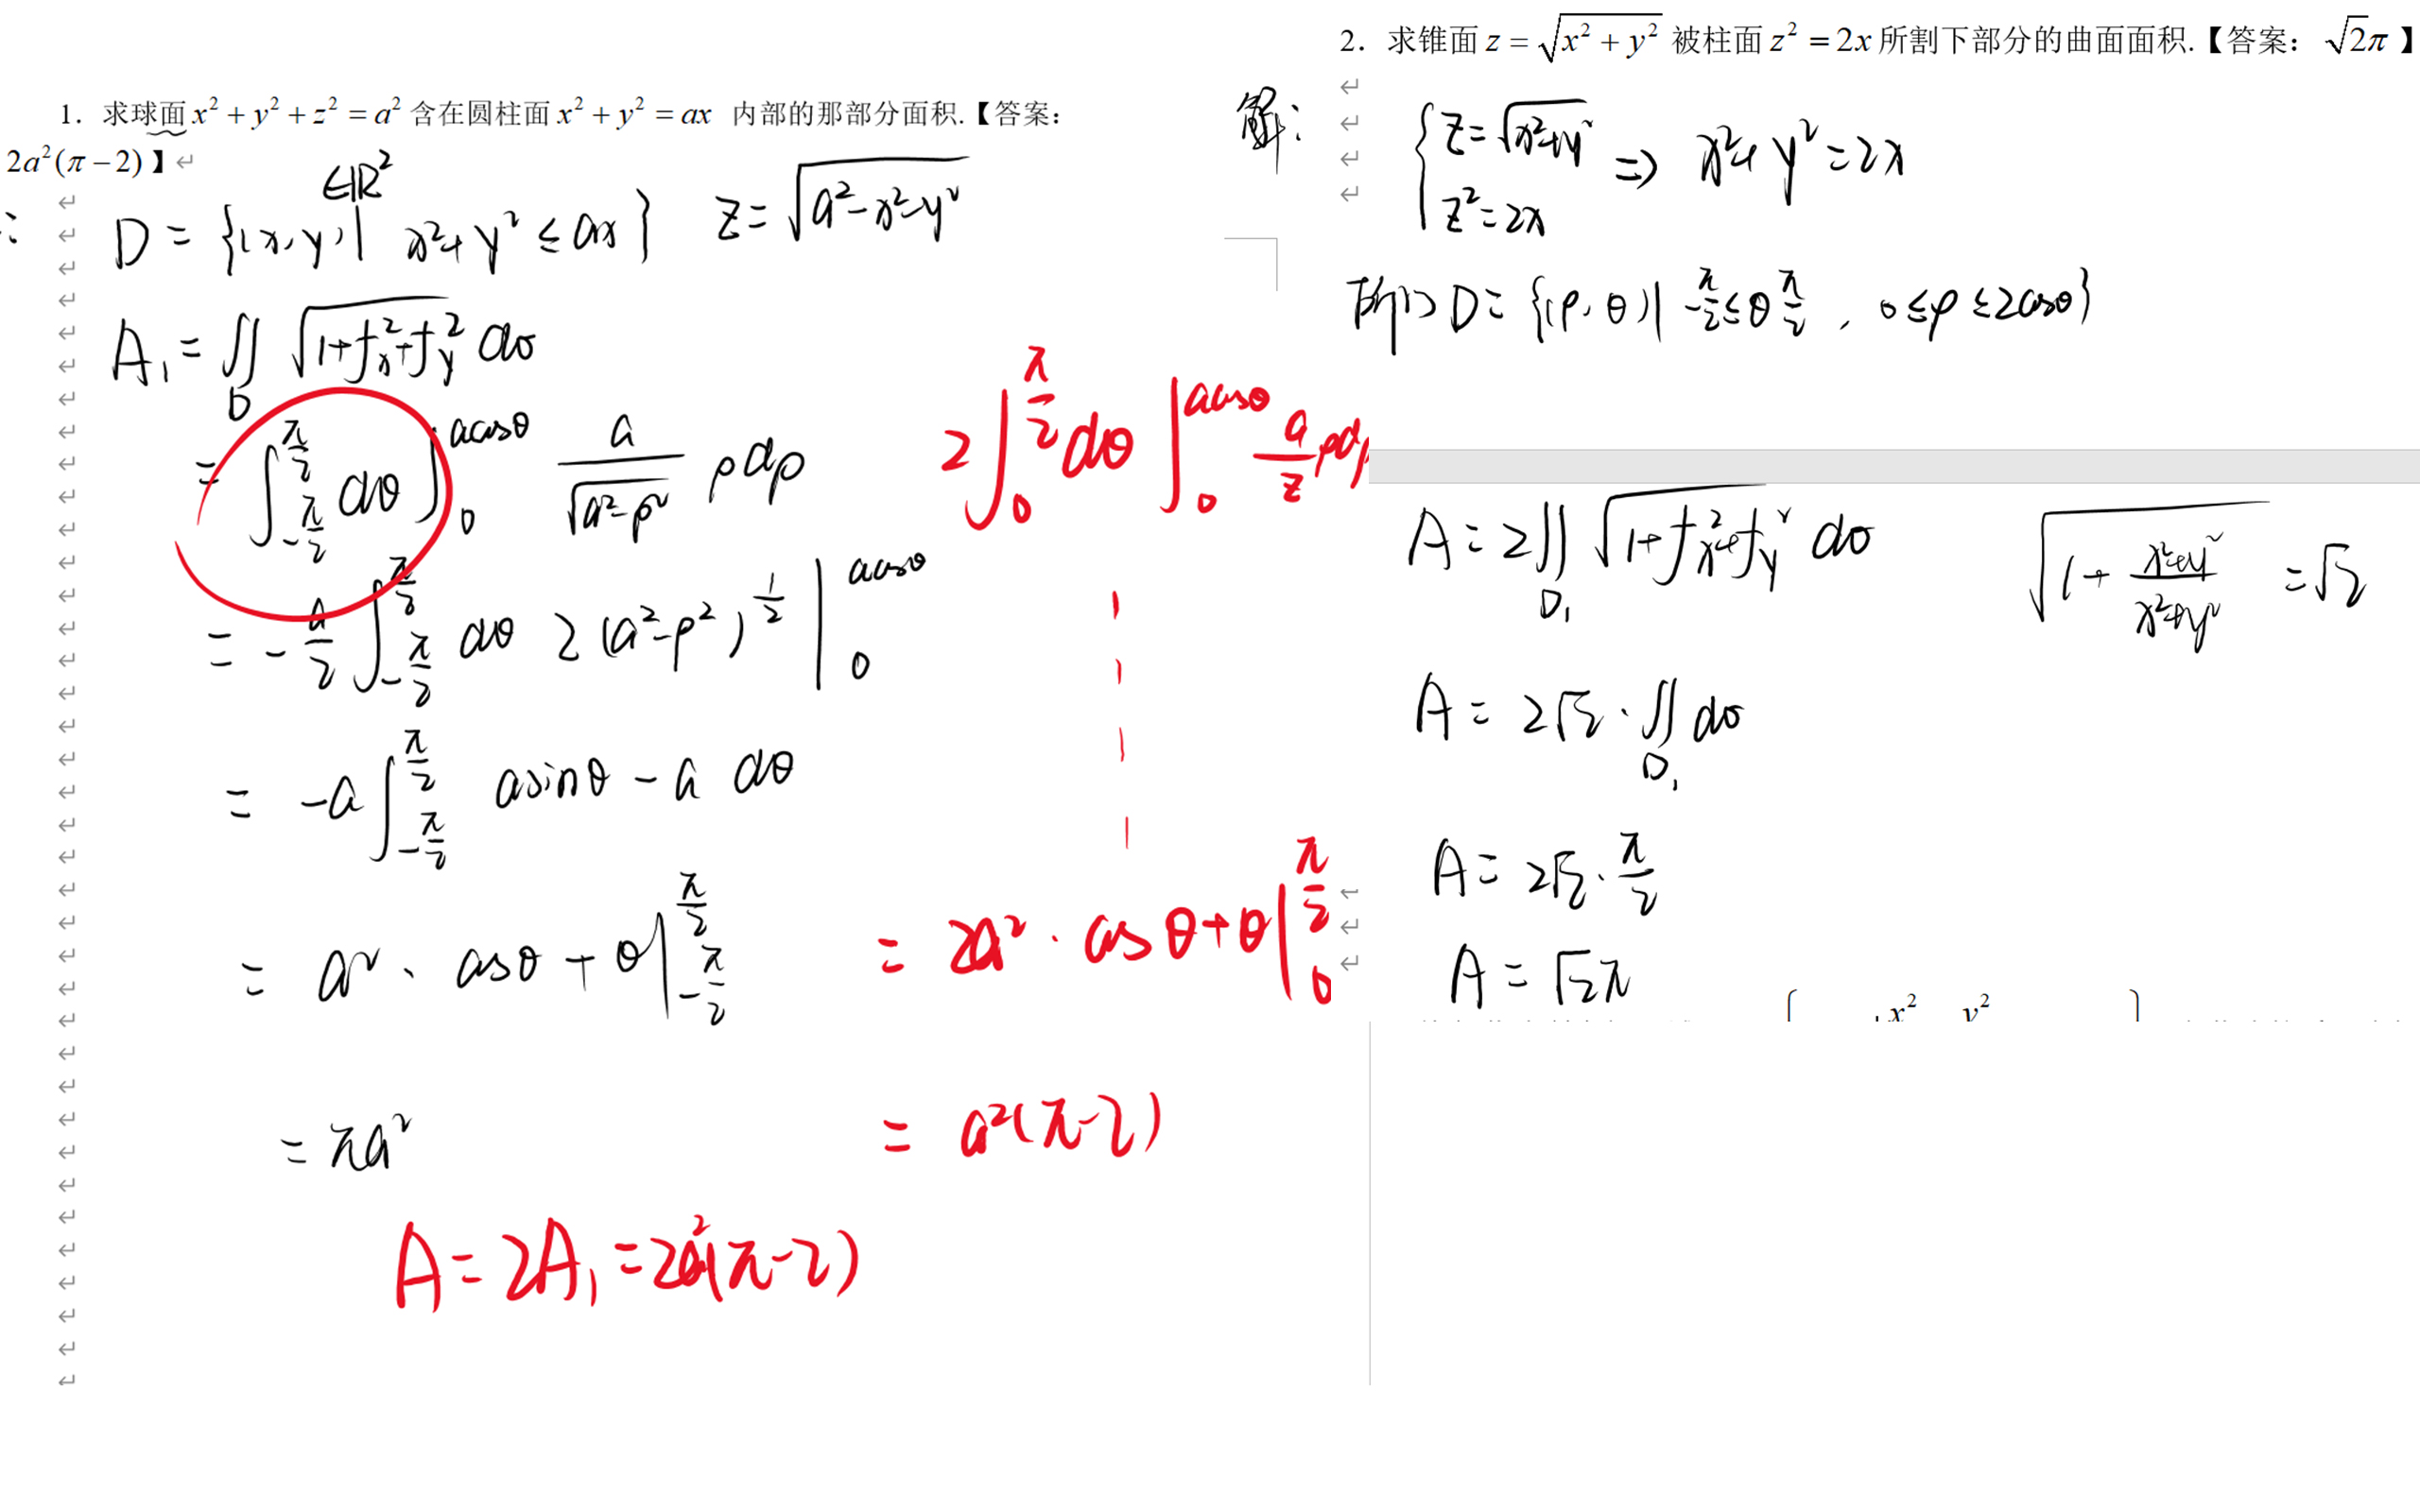 1. 求球面 x² + y² + z² = a² 含在圆柱面 x² + y² = ax 内部的那部分面积.【答案：
2a²(π−2)】
D = {(x,y) | x²+y² ≤ ax} z = √(a²−x²−y²)
∈ℝ²
A₁ = ∬_D √(1+f_x²+f_y²) dσ
= ∫_{-π/2}^{π/2} dθ ∫_0^{acosθ} a/√(a²−ρ²) ρdρ
= −a/2 ∫_{-π/2}^{π/2} dθ 2(a²−ρ²)^{1/2} |_0^{acosθ}
= −a ∫_{-π/2}^{π/2} asinθ − a dθ
= a² · cosθ + θ |_{-π/2}^{π/2}
= πa²
2∫_0^{π/2} dθ ∫_0^{acosθ} a/z ρdρ
= 2a² · cosθ+θ |_0^{π/2}
= a²(π−2)
A = 2A₁ = 2a²(π−2)
2. 求锥面 z = √(x² + y²) 被柱面 z² = 2x 所割下部分的曲面面积.【答案： √2π】
解：
{ z = √(x²+y²)
z² = 2x ⇒ x²+y² = 2x
所以 D = {(ρ,θ) | −π/2 ≤ θ π/2 , 0 ≤ ρ ≤ 2cosθ}
A = 2∬_{D₁} √(1+f_x²+f_y²) dσ √(1 + (x²+y²)/(x²+y²)) = √2
A = 2√2 · ∬_{D₁} dσ
A = 2√2 · π/2
A = √2π
x² y²